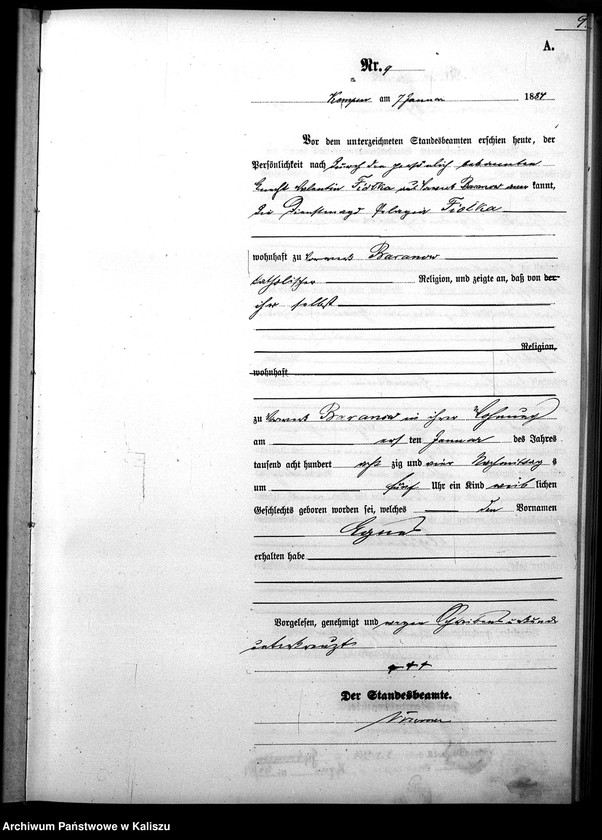 9.
A.
Nr. 9
Kempen am 7 Januar 1884
Vor dem unterzeichneten Standesbeamten erschien heute, der
Persönlichkeit nach durch den persönlich bekannten
Knecht Valentin Fiolka aus Baranow kannt,
die Dienstmagd Pelagia Fiolka
wohnhaft zu Baranow
katholischer Religion, und zeigte an, daß von der
ihr selbst
Religion,
wohnhaft
zu Baranow in ihrer Wohnung
am ersten Januar des Jahres
tausend acht hundert achtzig und vier Nachmittags
um fünf Uhr ein Kind weiblichen
Geschlechts geboren worden sei, welches den Vornamen
erhalten habe
Vorgelesen, genehmigt und wegen Schreibensunkunde
unterkreuzt
+++
Der Standesbeamte.
Archiwum Państwowe w Kaliszu